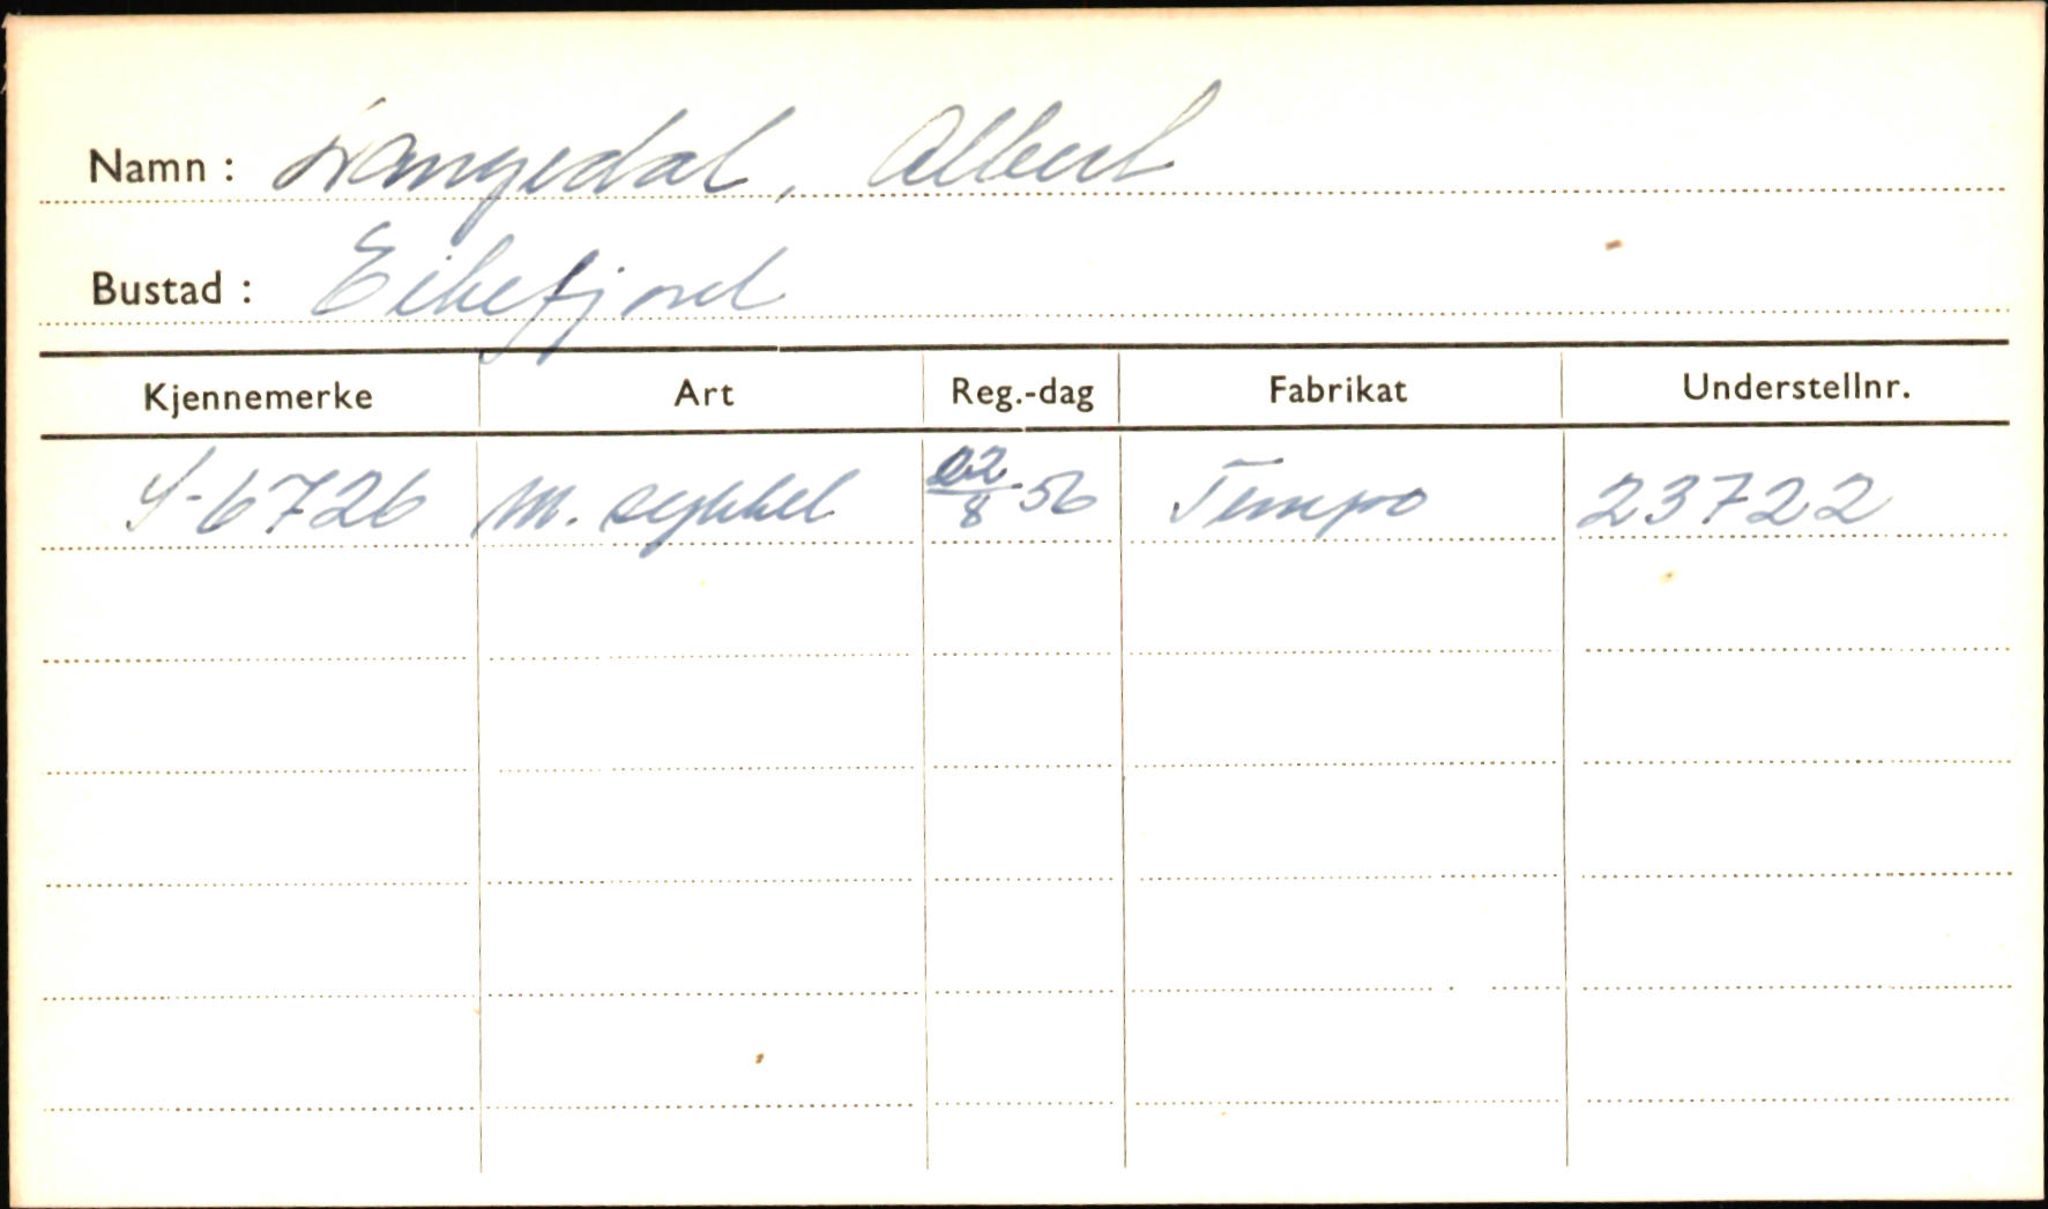 Namn: Langedal, Albert
Bustad: Eikefjord
Kjennemerke Art Reg.-dag Fabrikat Understellnr.
S-6726 M. sykkel 22/8-56 Tempo 23722